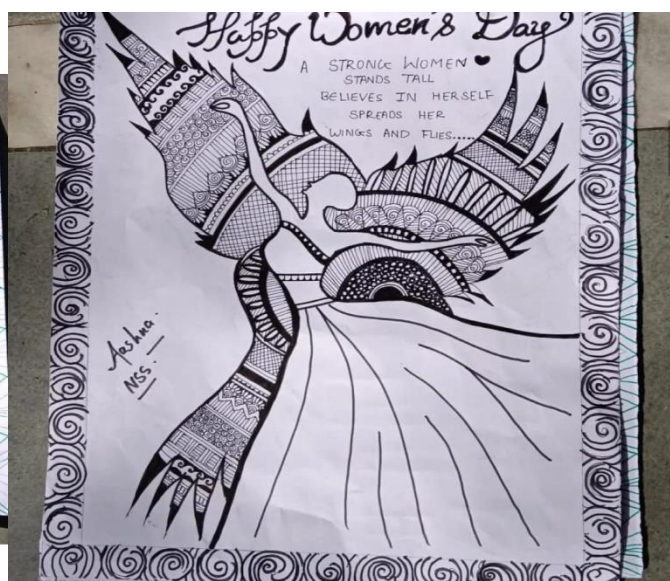 Happy Women's Day
A STRONG WOMEN
STANDS TALL
BELIEVES IN HERSELF
SPREADS HER
WINGS AND FLIES.....
Aashna.
NSS.